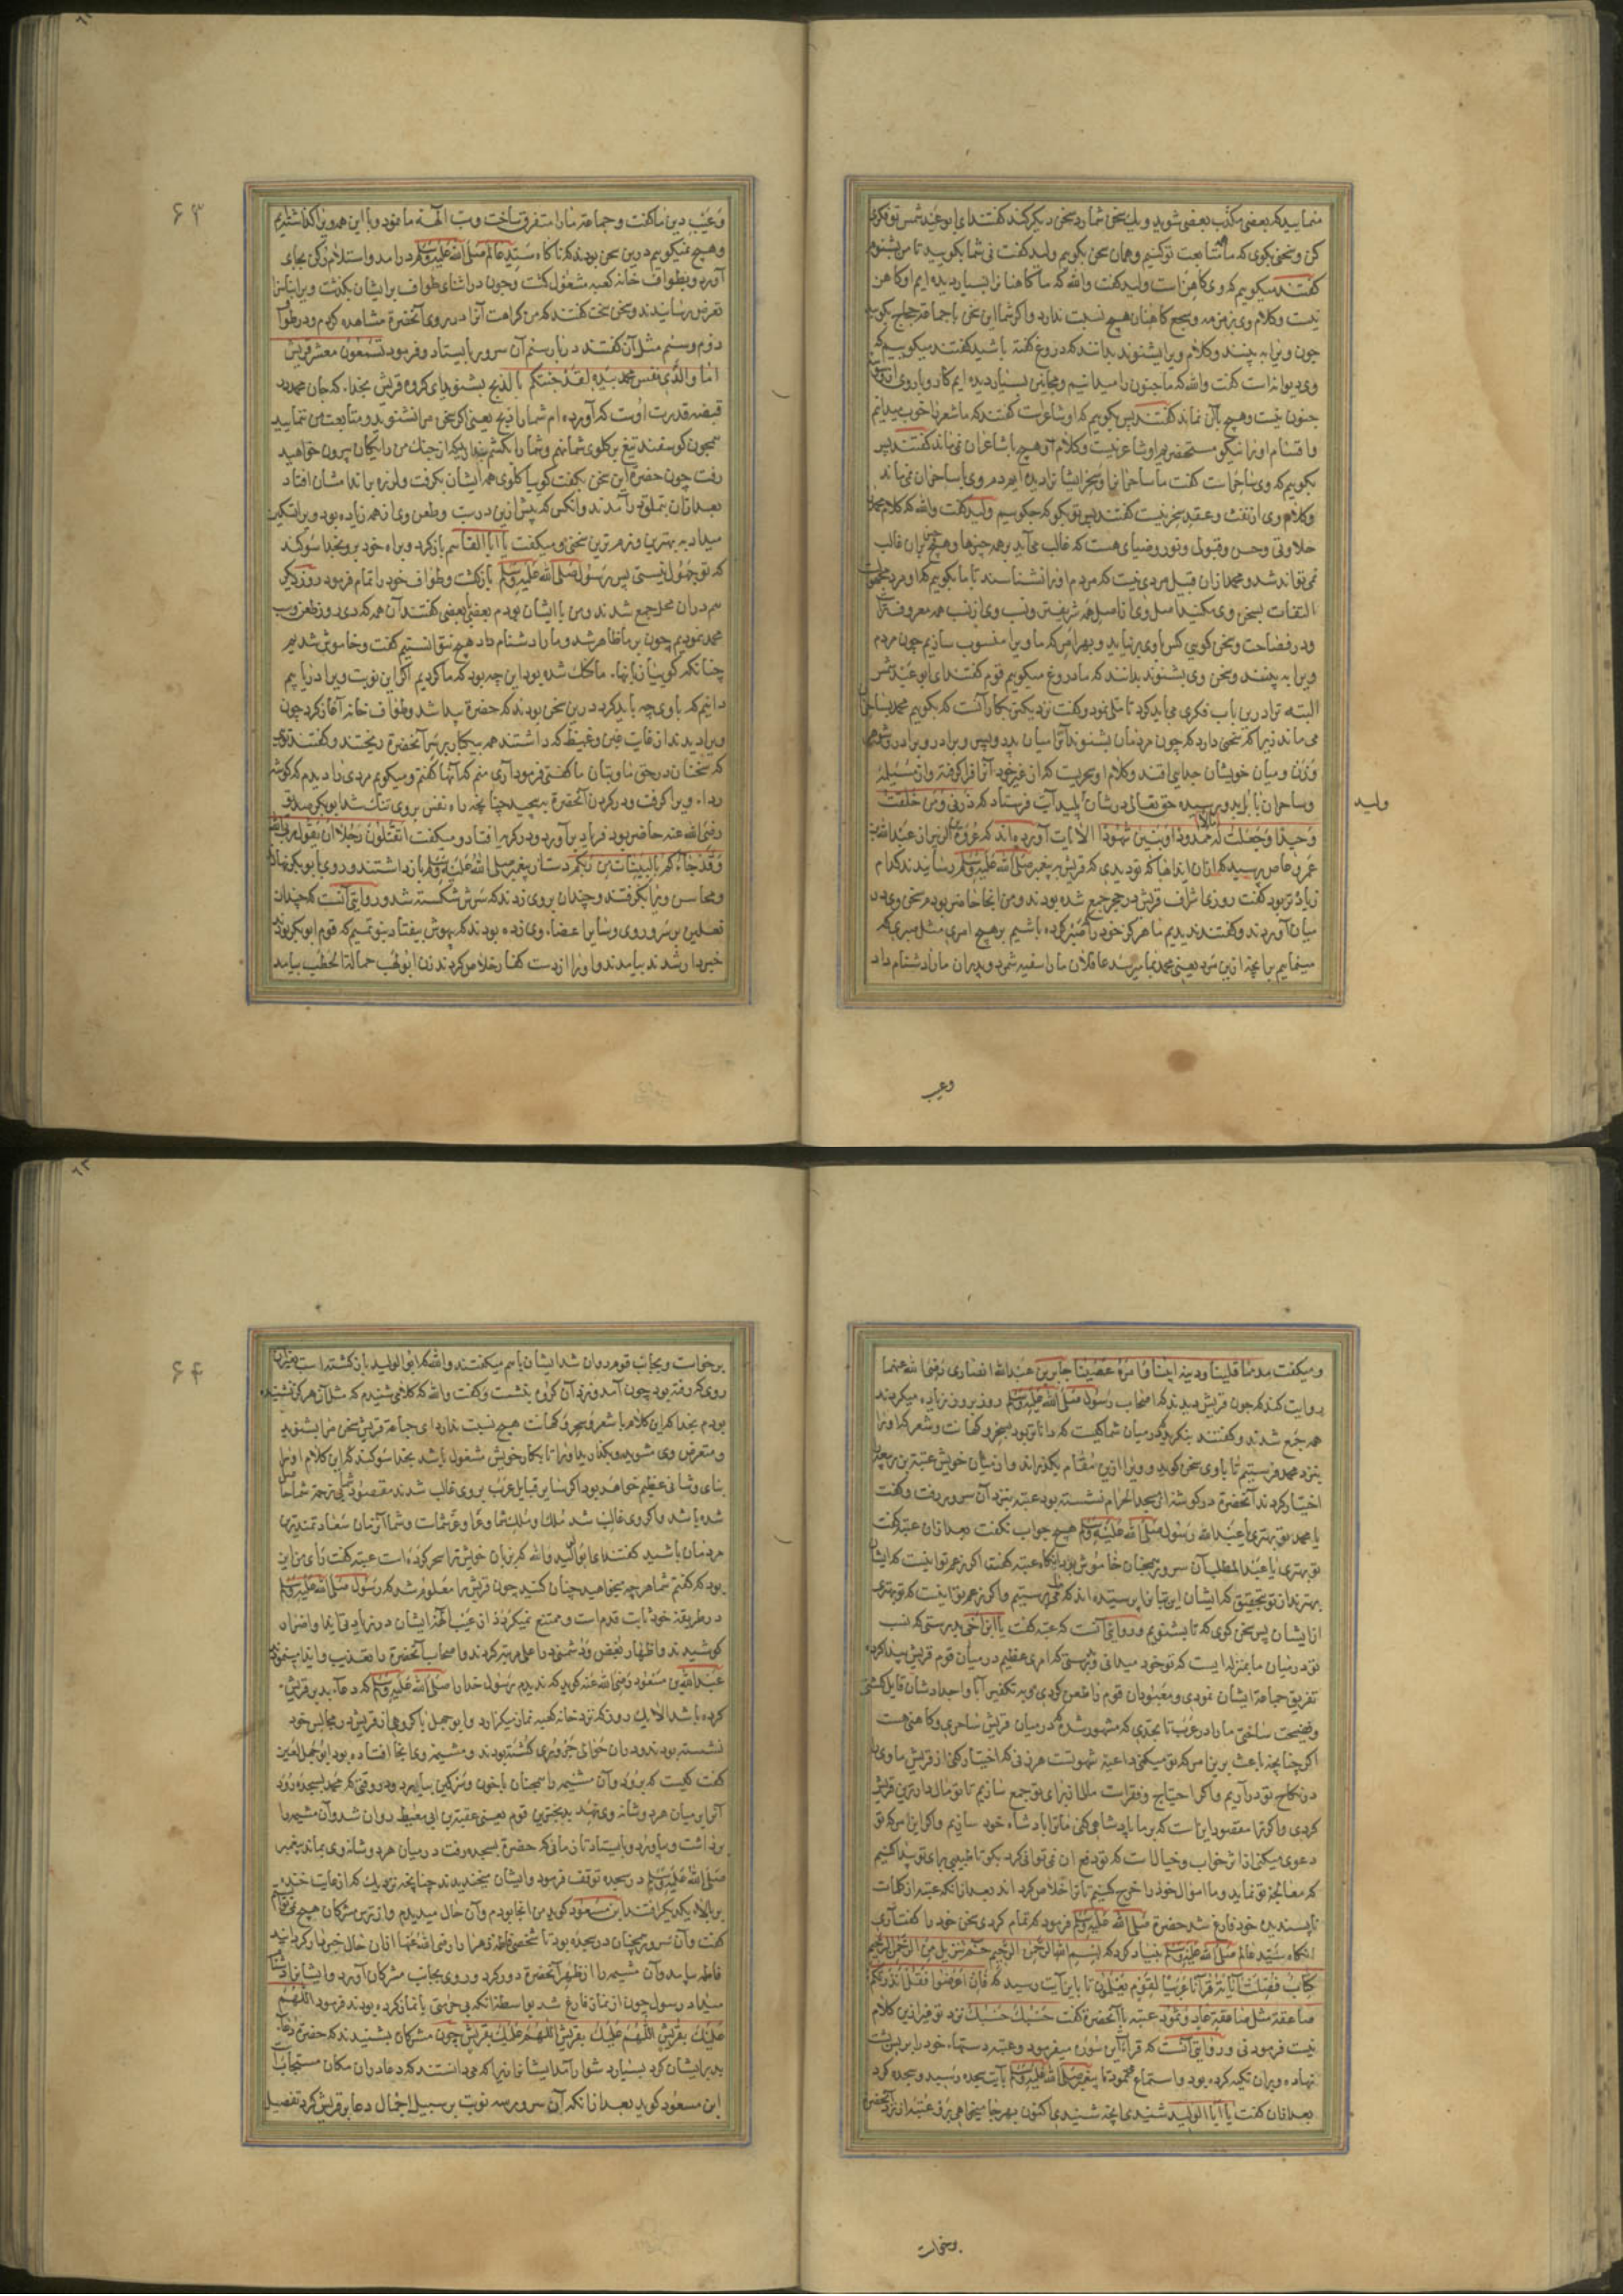 منمایید که بعضی مکذب بعضی شوید و یک سخن شما رد سخن دیگر کند گفتند ای ابو عبد شمس تو فکری
کن و سخنی بگوی که ما متابعت تو کنیم و همان سخن بگویم ولید گفت نی شما بگویید تا من بشنوم
گفتند میگوییم که وی کاهن است ولید گفت والله که ما کاهنانرا بسیار دیده ایم او کاهن
نیست و کلام وی بزمزمه و سجع کاهنان هیچ نسبت ندارد و اگر شما این سخن با جماعة حجاج بگویید
چون ویرا به بینند و کلام ویرا بشنوند بدانند که دروغ گفته باشید گفتند میگوییم که
وی دیوانه است گفت والله که ما جنون را میدانیم و مجانین بسیار دیده ایم کار و بار وی
جنون نیست و هیچ بآن نماند گفتند پس بگوییم که او شاعر است گفتند که ما شعر را خوب میدانیم
و اقسام اورا نیکو مستحضریم او شاعر نیست و کلام او هیچ با شاعران نمی ماند گفتند پس
بگوییم که وی ساحر است گفت ما ساحرانرا و سحر ایشانرا دیده ایم دم وی با ساحران نمی ماند
و کلام وی از نفث و عقد سحر نیست گفتند پس تو بگو که چگوییم ولید گفت والله که کلام محمد
حلاوتی و حسن و قبول و نور و ضیای هست که غالب می آید بر همه چیزها و هیچ سخن بر آن غالب
نمی تواند شد و محمد از آن قبیل مردی نیست که مردم اورا نشناسند تا ما بگوییم که او مردیست
التفات بسخن وی مکنید اصل وی از اصل همه شریفتر و نسب وی از نسب همه معروفتر
و در فصاحت و سخن گویی کس با وی بر نیاید و بهر امر که ما ویرا منسوب سازیم چون مردم
ویرا به بینند و سخن وی بشنوند بدانند که ما دروغ میگوییم قوم گفتند ای ابو عبد شمس
البته ترا درین باب فکری می باید کرد تا ملی نمود و گفت نزدیکترین بکار آنست که بگوییم محمد بساحران
می ماند زیرا که سخنی دارد که چون مردمان بشنوند آنرا میان پدر و پسر و برادر و برادر و شوهر
و زن و میان خویشان جدایی افتد و کلام او سحریست که از غیر خود آنرا فرا گرفته و از مسیلمه
و ساحران بابل بدو رسیده حق تعالی در شان ولید آیت فرستاد که ذرنی و من خلقت
وحیدا وجعلت له مالا ممدودا وبنین شهودا الآیات آورده اند که عروة بن الزبیر از عبد الله بن
عمرو عاص پرسید که از آن ایذاها که تو دیدی که قریش به پیغمبر صلی الله علیه وسلم رسانیدند کدام
زیاده تر بود گفت روزی اشراف قریش در حجر جمع شده بودند و من آنجا حاضر بودم سخن وی در
میان آوردند و گفتند ندیدیم ما هرگز خود را که صبر کرده باشیم بر هیچ امری مثل صبری که
مینماییم بر آنچه ازین مرد یعنی محمد بما میرسد عاقلان ما را سفیه شمرد و پدران ما را دشنام داد
ولید
وعیب
۶۳
و عیب دین ما گفت و جماعة ما را متفرق ساخت و سب آلهه ما نمود و با این همه ویرا گذاشته ایم
و هیچ نمیگوییم درین سخن بودند که ناگاه سید عالم صلی الله علیه وسلم در آمد و استلام رکن بجای
آورد و بطواف خانه کعبه مشغول گشت و چون در اثنای طواف بر ایشان بگذشت ویرا بناسزا
تعرض رسانیدند و سخن سخت گفتند که من کراهت آنرا در روی آنحضرت مشاهده کردم و در طواف
دوم و سیم مثل آن گفتند در بار سیم آن سرور بایستاد و فرمود تسمعون معشر قریش
اما والذی نفس محمد بیده لقد جئتکم بالذبح بشنوید ای گروه قریش بخدایی که جان محمد در
قبضه قدرت اوست که آورده ام شما را ذبح یعنی اگر سخن مرا نشنوید و متابعت من ننمایید
همچون گوسفند تیغ بر گلوی شما نهم و شما را بکشم پندارید که از چنگ من رایگان بیرون خواهید
رفت چون حضرت این سخن بگفت گوییا گلوی همه ایشان بگرفت و لرزه بر اندامشان افتاد
بعد از آن بتملق در آمدند و آنکس که پیش ازین در سب و طعن وی از همه زیاده بود ویرا تسکین
میداد به بهترین و نرم ترین سخنی و میگفت یا ابا القاسم باز گرد و براه خود برو بخدا سوگند
که تو جهول نیستی پس رسول صلی الله علیه وسلم بازگشت و طواف خود را تمام فرمود روز دیگر
هم در آن محل جمع شدند و من با ایشان بودم بعضی ببعضی گفتند آن همه که دی روز طعن و سب
محمد نمودیم چون بر ما ظاهر شد و ما را دشنام داد هیچ نتوانستیم گفت و خاموش شدیم
چنانکه گوییا زبانهاء ما گنگ شده بود این چه بود که ما کردیم اگر این نوبت ویرا دریابیم
دانیم که با وی چه باید کرد درین سخن بودند که حضرة پیدا شد و طواف خانه آغاز کرد چون
ویرا دیدند از غایت غبن و غیظ که داشتند همه بیکبار بر سر آنحضرة ریختند و گفتند تویی
که سخنان در حق ما و بتان ما گفتی فرمود آری منم که آنها گفتم و میگویم مردی را دیدم که گوشه
رداء ویرا گرفت و در گردن آنحضرة به پیچید چنانچه راه نفس بر وی تنگ شد ابوبکر صدیق
رضی الله عنه حاضر بود فریاد بر آورد و در گریه افتاد و میگفت اتقتلون رجلا ان یقول ربی الله
وقد جاءکم بالبینات من ربکم دست از پیغمبر صلی الله علیه وسلم باز داشتند و روی بابوبکر نهادند
و محاسن ویرا بگرفتند و چندان بر وی زدند که سرش شکسته شد و روایتی آنست که چندان
نعلین بر سر و روی و سایر اعضاء وی زده بودند که بیهوش بیفتاد بنو تمیم که قوم ابوبکر بودند
خبردار شدند بیامدند و او را از دست کفار خلاص کردند زن ابولهب حمالة الحطب بیامد
و میگفت مذمما قلینا ودینه ابینا وامره عصینا جابر بن عبد الله انصاری رضی الله عنهما
روایت کند که چون قریش دیدند که اصحاب رسول صلی الله علیه وسلم روز بروز زیاده میگردند
همه جمع شدند و گفتند بنگرید که در میان شما کیست که داناتر بود بسحر و کهانت و شعر که او را
بنزد محمد فرستیم تا با وی سخن گوید و ویرا ازین مقام بگذراند و از میان خویش عتبة بن ربیعه را
اختیار کردند آنحضرة در گوشه از مسجد الحرام نشسته بود عتبه بنزد آن سرور رفت و گفت
یا محمد تو بهتری یا عبد الله رسول صلی الله علیه وسلم هیچ جواب نگفت بعد از آن عتبه گفت
تو بهتری یا عبد المطلب آن سرور همچنان خاموش بود آنگاه عتبه گفت اگر زعم تو اینست که ایشان
بهتر از تو بتحقیق که ایشان این بتانرا پرستیده اند که ما می پرستیم و اگر زعم تو اینست که تو بهتری
از ایشان پس سخن گوی که تا بشنویم و روایتی آنست که عتبه گفت یا ابن اخی بدرستی که نسب
تو در میان ما بمنزله ایست که تو خود میدانی و بدرستی که امری عظیم در میان قوم قریش پیدا کرده
تفریق جماعة ایشان نمودی و معبودان قوم را طعن کردی و به تکفیر آبا و اجدادشان قایل گشتی
و فضیحت ساختی ما را در عرب تا بحدی که مشهور شده که در میان قریش ساحری و کاهنی هست
اگر چنانچه باعث برین امر که تو میکنی داعیه شهوتست هر زنی که اختیار کنی از قریش ما وی را
در نکاح تو در آریم و اگر احتیاج و فقر است مالها از برای تو جمع سازیم تا تو مال دارترین قریش
گردی و اگر ترا مقصود اینست که بر ما پادشاهی کنی ما ترا پادشاه خود سازیم و اگر این امر که تو
دعوی میکنی از اثر خواب و خیالات که تو دفع آن نمی توانی کرد بگو تا طبیبی برای تو پیدا کنیم
که معالجه تو نماید و ما اموال خود را خرج کنیم تا ترا خلاص گرداند بعد از آنکه عتبه از کلمات
ناپسندیده خود فارغ شد حضرة صلی الله علیه وسلم فرمود که تمام کردی سخن خود را گفت آری
آنگاه سید عالم صلی الله علیه وسلم بنیاد کرد که بسم الله الرحمن الرحیم حم تنزیل من الرحمن الرحیم
کتاب فصلت آیاته قرآنا عربیا لقوم یعلمون تا باین آیت رسید که فان اعرضوا فقل انذرتکم
صاعقة مثل صاعقة عاد وثمود عتبه با آنحضرة گفت حسبک حسبک نزد تو غیر ازین کلام
نیست فرمود نی و روایتی آنست که قرائت این سوره میفرمود و عتبه دستهاء خود را بر پس پشت
نهاده و بر آن تکیه کرده بود و استماع مینمود تا پیغمبر صلی الله علیه وسلم بآیت سجده رسید و سجده کرد
بعد از آن گفت یا ابا الولید شنیدی آنچه شنیدی اکنون بهر جا میخواهی برو عتبه از نزد آنحضرة
برخاست
۶۴
برخاست و بجانب قوم روان شد ایشان با هم میگفتند والله که ابو الولید بازگشته است بغیر آن
روی که رفته بود چون آمد و نزد آن گروه بنشست و گفت والله که کلامی شنیدم که مثل آن هرگز نشنیده
بودم بخدا که این کلام با شعر و سحر و کهانت هیچ نسبت ندارد ای جماعة قریش سخن مرا بشنوید
و متعرض وی مشوید و بگذارید او را تا بکار خویش مشغول باشد بخدا سوگند که این کلام او را
بنای و شانی عظیم خواهد بود اگر سایر قبایل عرب بر وی غالب شدند مقصود شما بی زحمت شما حاصل
شده باشد و اگر وی غالب شد ملک او ملک شما و عز او عز شماست و شما آنزمان سعادتمندترین
مردمان باشید گفتند ای ابو الولید والله که بزبان خویش ترا سحر کرده است عتبه گفت رای من این
بود که گفتم شما هر چه میخواهید چنان کنید چون قریش را معلوم شد که رسول صلی الله علیه وسلم
در طریقه خود ثابت قدم است و ممتنع نمیگردد از عیب آلهه ایشان در زیادتی ایذا و اضرار او
کوشیدند و اظهار بغض و دشمنی را علی مرتبه کردند و اصحاب آنحضرة را تعذیب و ایذا مینمودند
عبد الله بن مسعود رضی الله عنه گوید که ندیدم رسول خدا را صلی الله علیه وسلم که دعاء بد بر قریش
کرده باشد الا یک روز که نزد خانه کعبه نماز میگزارد و ابو جهل با گروهی از قریش در مجالس خود
نشسته بودند و در آن حوالی جزوری کشته بودند و مشیمه وی آنجا افتاده بود ابو جهل لعین
گفت کیست که برود و آن مشیمه را همچنان با خون و سرگین بیاورد و در وقتی که محمد بسجده رود
آنرا بر میان هر دو شانه وی نهد بدبخترین قوم یعنی عقبة بن ابی معیط روان شد و آن مشیمه را
برداشت و بیاورد و بایستاد تا زمانی که حضرة بسجده رفت در میان هر دو شانه وی بماند پیغمبر
صلی الله علیه وسلم در سجده توقف فرمود و ایشان میخندیدند چنانچه نزدیک که از غایت خنده
بر بالاء یکدیگر افتند ابن مسعود گوید من آنجا بودم و آن حال میدیدم و از ترس مشرکان هیچ نمی توانستم
گفت و آن سرور همچنان در سجده بود تا شخصی فاطمه زهرا را رضی الله عنها از آن حال خبردار گردانید
فاطمه بیامد و آن مشیمه را از ظهر آنحضرة دور کرد و روی بجانب مشرکان آورد و ایشانرا دشنام
میداد رسول چون از نماز فارغ شد بواسطه آنکه بی حرمتی با نماز کرده بودند فرمود اللهم
علیک بقریش اللهم علیک بقریش اللهم علیک بقریش چون مشرکان بشنیدند که حضرة دعاء
بد بر ایشان کرد بسیار دشوار آمد ایشانرا زیرا که میدانستند که دعا در آن مکان مستجابست
ابن مسعود گوید بعد از آنکه آن سرور سه نوبت بر سبیل اجمال دعا بر قریش کرد تفصیل